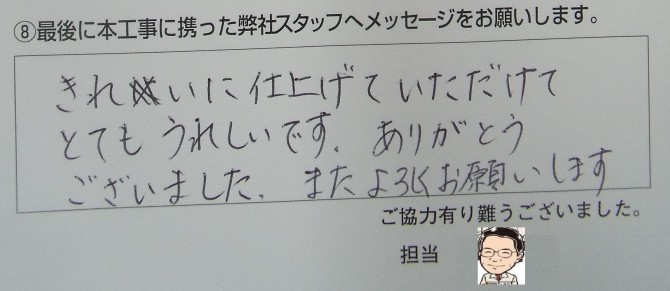 ⑧最後に本工事に携った弊社スタッフへメッセージをお願いします。
きれいに仕上げていただけて
とてもうれしいです。ありがとう
ございました。またよろしくお願いします
ご協力有り難うございました。
担当